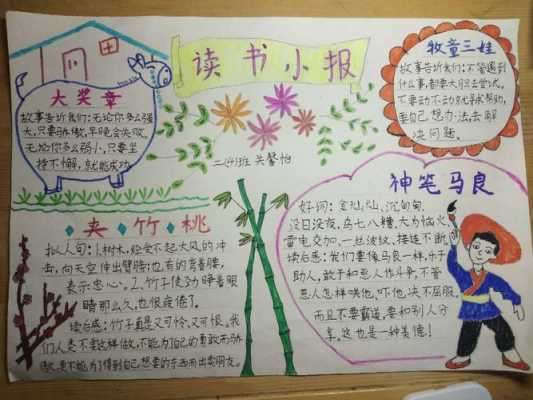 读书小报
二(4)班 关馨怡
大奖章
故事告诉我们:无论你多么强
大,只要骄傲,早晚会失败。
无论你多么弱小,只要坚
持不懈,就能成功
牧童三娃
故事告诉我们:不管遇到
什么事,都要大胆去尝试,
不要动不动就寻求帮助,
要自己想办法去解
决问题。
夹竹桃
拟人句:1.树木,经受不起大风的冲
击,向天空伸出臂膀;也有的弯着腰,
表示忠心。2.竹子使劲睁着眼
睛那么久,也很疲倦了。
读后感:竹子真是又可怜,又可恨,我
们人类不要这样做,不能为了自己的勇敢而骄
傲,更不能为了得到自己想要的东西而出卖朋友。
神笔马良
好词:金灿灿,沉甸甸,
没日没夜,乌七八糟,大为恼火
雷电交加,一丝波纹,接连不断
读后感:我们要像马良一样,乐于
助人,敢于和恶人作斗争,不管
恶人怎样哄他,吓他,决不屈服,
而且不要霸道,要和别人分
享,这也是一种美德!